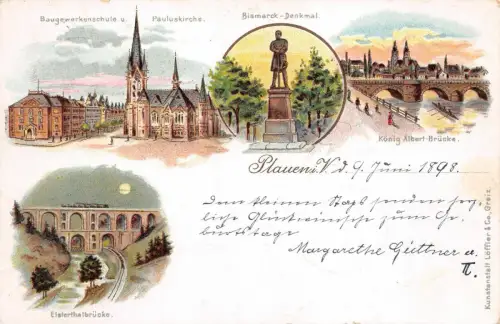 Baugewerkenschule u. Pauluskirche.
Bismarck-Denkmal.
König Albert-Brücke.
Plauen i. V. d. 9. Juni 1898.
Dem kleinen senden herz-
liche Glückwünsche zum Ge-
burtstage
Margarethe Güttner u.
Elsterthalbrücke.
Kunstanstalt Löffler & Co. Greiz.